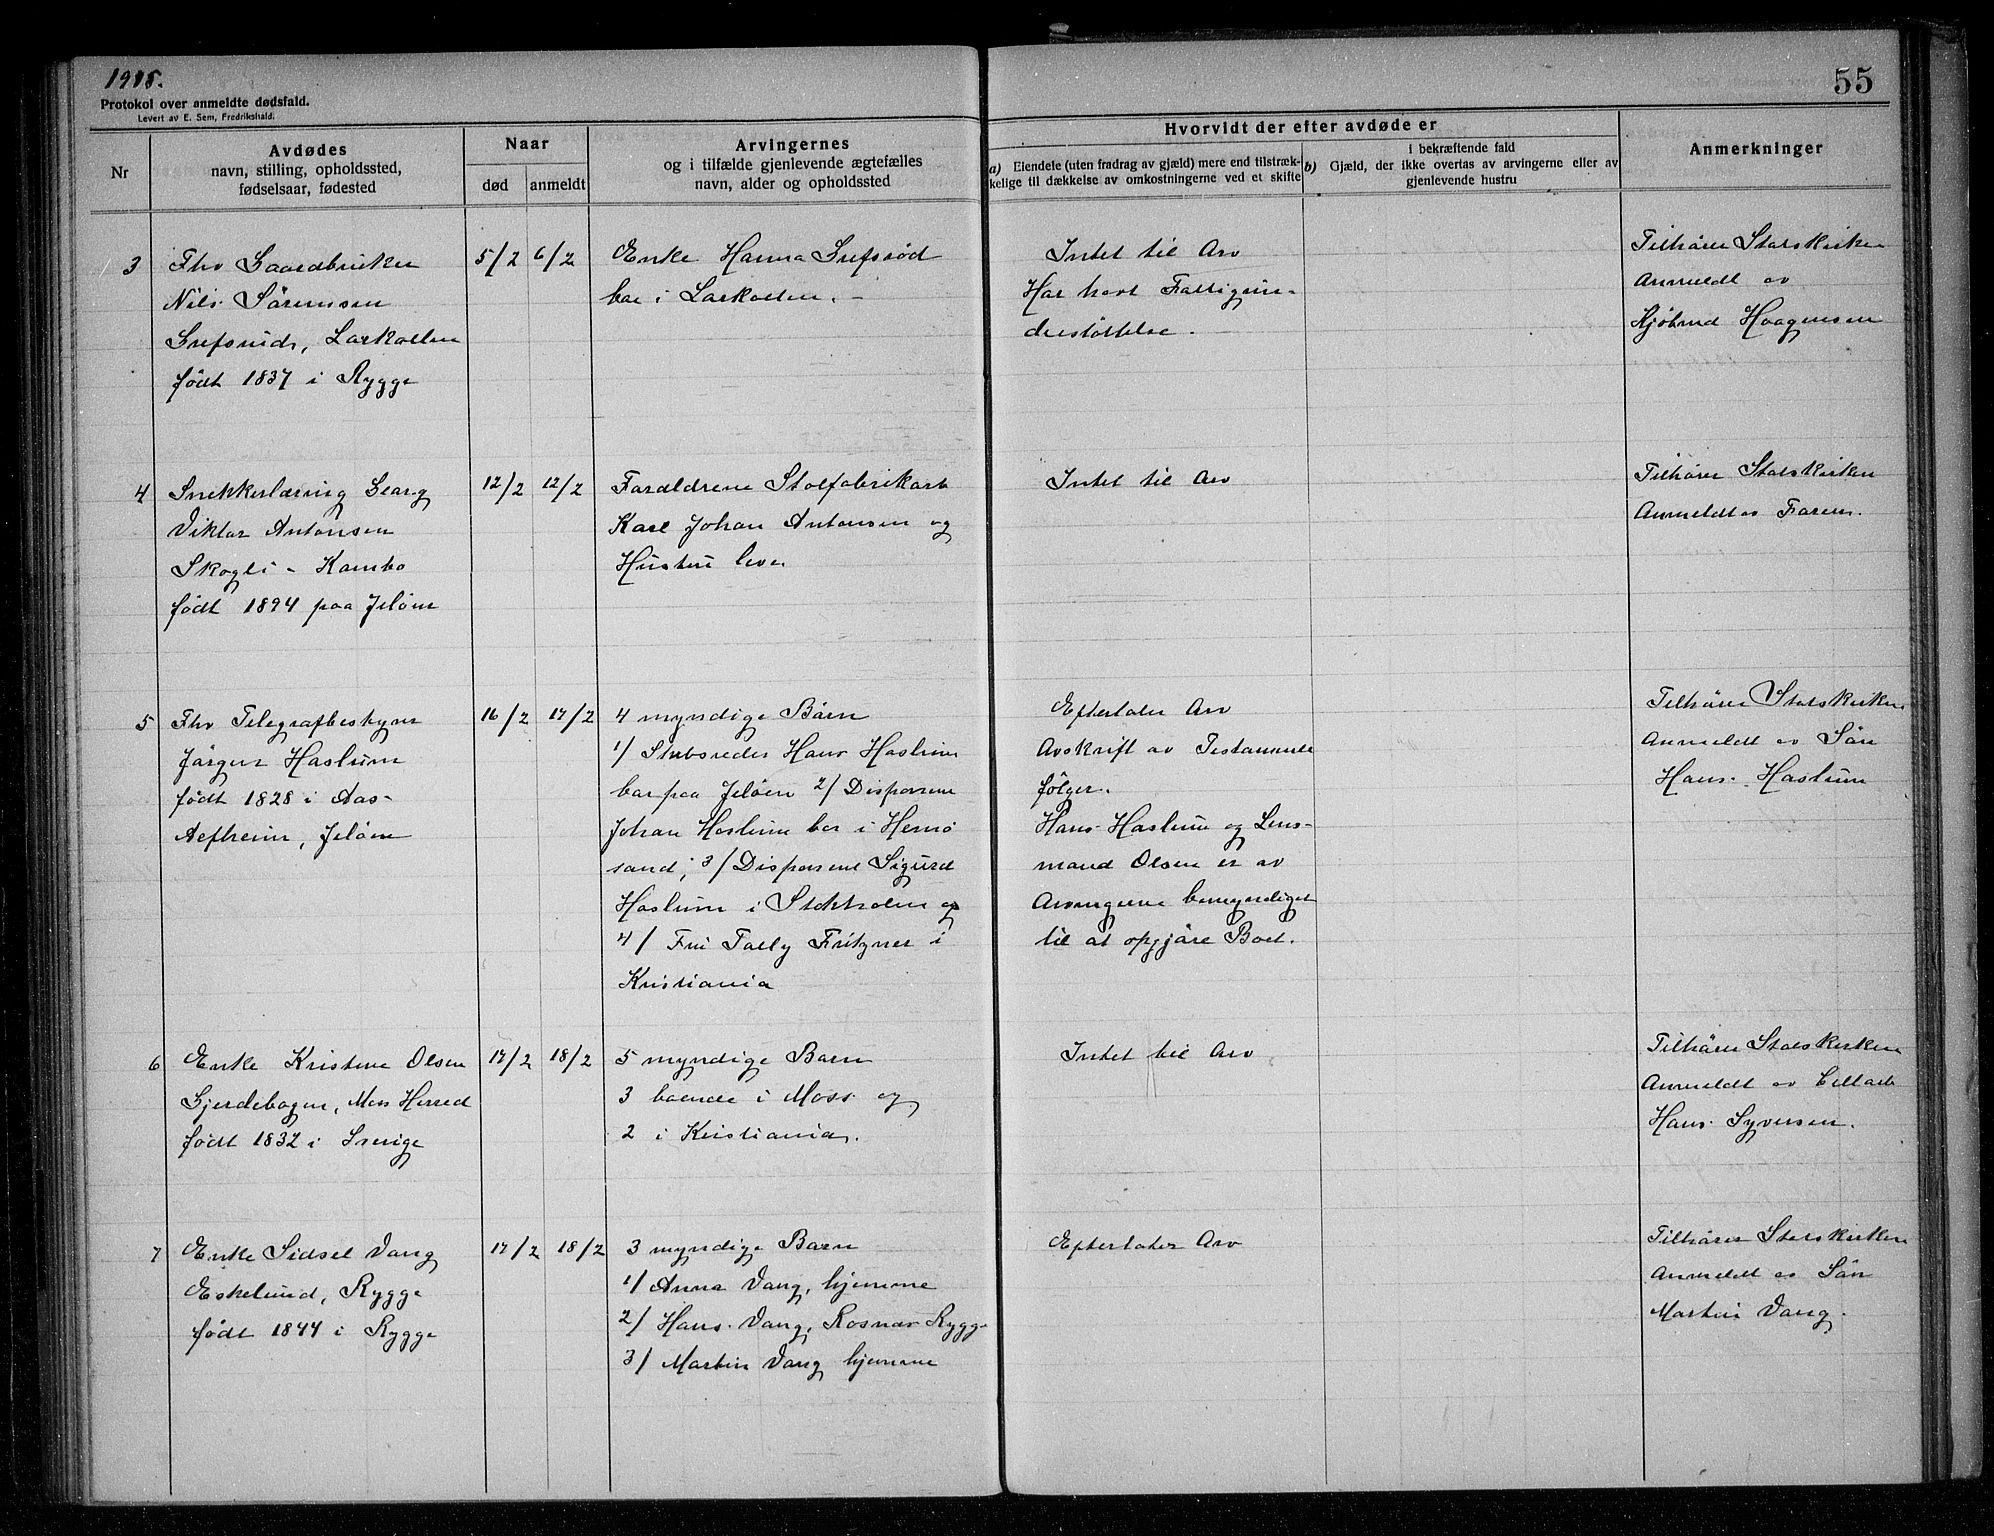 1915.
Protokol over anmeldte dødsfald.
Levert av E. Sem, Fredrikshald.
55
Nr
Avdødes
navn, stilling, opholdssted,
fødselsaar, fødested
Naar
død
anmeldt
Arvingernes
og i tilfælde gjenlevende ægtefælles
navn, alder og opholdssted
Hvorvidt der efter avdøde er
a) Eiendele (uten fradrag av gjæld) mere end tilstræk-
kelige til dækkelse av omkostningerne ved et skifte
i bekræftende fald
b) Gjæld, der ikke overtas av arvingerne eller av
gjenlevende hustru
Anmerkninger
3
Fhv Gaardbruker
Nils Sørensen
Grefsrud, Larkollen
født 1837 i Rygge
5/2
6/2
Enke Hanna Grefsrød
bor i Larkollen. -
Intet til Arv
Har havt Fattigun-
derstøttelse.
Tilhører Statskirken
Anmeldt av
Kjøbmd Haagensen
4
Snekkerlærling Georg
Viktor Antonsen
Skogli - Kambo
født 1894 paa Jeløen
12/2
12/2
Forældrene Stolfabrikarb
Karl Johan Antonsen og
Hustru lever
Intet til Arv
Tilhører Statskirken
Anmeldt av Faren.
5
Fhv Telegrafbestyrer
Jørgen Haslum
født 1828 i Aas-
Alfheim, Jeløen
16/2
17/2
4 myndige Børn
1/ Skibsreder Hans Haslum
bor paa Jeløen 2/ Disponent
Johan Haslum bor i Hernø
sand; 3/ Disponent Sigurd
Haslum i Stokholm og
4/ Fru Fritzner i
Kristiania
Efterlater Arv
Avskrift av Testamente
følger.
Hans Haslum og Lens-
mand Olsen er av
Arvingerne bemyndiget
til at opgjøre Boet.
Tilhører Statskirken
Anmeldt av Søn
Hans Haslum
6
Enke Kristine Olsen
Gjerdebogen, Moss Herred
født 1832 i Sverige
17/2
18/2
5 myndige Barn
3 boende i Moss og
2 i Kristiania.
Intet til Arv
Tilhører Statskirken
Anmeldt av
Hans Syversen.
7
Enke Sidsel Vang
Eskelund, Rygge
født 1844 i Rygge
17/2
18/2
3 myndige Barn
1/ Anna Vang, hjemme
2/ Hans Vang, Rosnæs Rygge
3/ Martin Vang hjemme
Efterlater Arv
Tilhører Statskirken
Anmeldt av Søn
Martin Vang.